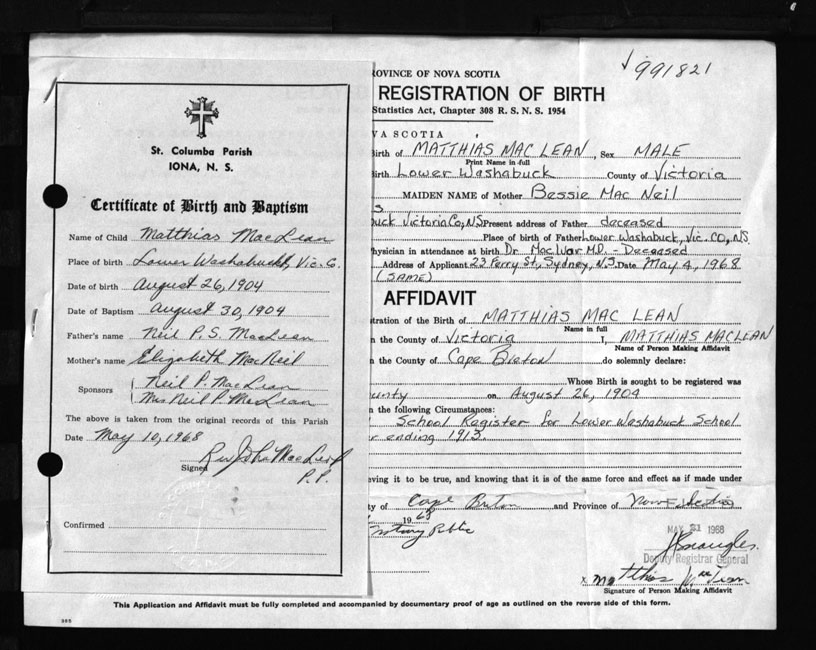 St. Columba Parish
IONA, N. S.
Certificate of Birth and Baptism
Name of Child Matthias MacLean
Place of birth Lower Washabuckt, Vic. Co.
Date of birth August 26, 1904
Date of Baptism August 30, 1904
Father's name Neil P. S. MacLean
Mother's name Elizabeth MacNeil
Sponsors Neil P. MacLean
Mrs Neil P. McLean
The above is taken from the original records of this Parish
Date May 10, 1968
Signed Rev John MacLeod
P.P.
Confirmed
√991821
ROVINCE OF NOVA SCOTIA
REGISTRATION OF BIRTH
Statistics Act, Chapter 308 R. S. N. S. 1954
VA SCOTIA
Birth of MATTHIAS MAC LEAN, Sex MALE
Print Name in full
irth Lower Washabuck County of Victoria
MAIDEN NAME of Mother Bessie Mac Neil
s
buck Victoria Co, NS Present address of Father deceased
Place of birth of Father Lower Washabuck, Vic. CO, NS.
hysician in attendance at birth Dr. MacIvor M.D. - Deceased
Address of Applicant 23 Ferry St, Sydney, N.S. Date May 4, 1968
(SAME)
AFFIDAVIT
stration of the Birth of MATTHIAS MAC LEAN
Name in full
n the County of Victoria I, MATTHIAS MACLEAN
Name of Person Making Affidavit
n the County of Cape Breton do solemnly declare:
Whose Birth is sought to be registered was
ounty on August 26, 1904
n the following Circumstances:
School Register for Lower Washabuck School
r ending 1913.
eving it to be true, and knowing that it is of the same force and effect as if made under
ty of Cape Breton and Province of Nova Scotia
1968
Notary Public
MAY 31 1968
Deputy Registrar General
x Matthias MacLean
Signature of Person Making Affidavit
This Application and Affidavit must be fully completed and accompanied by documentary proof of age as outlined on the reverse side of this form.